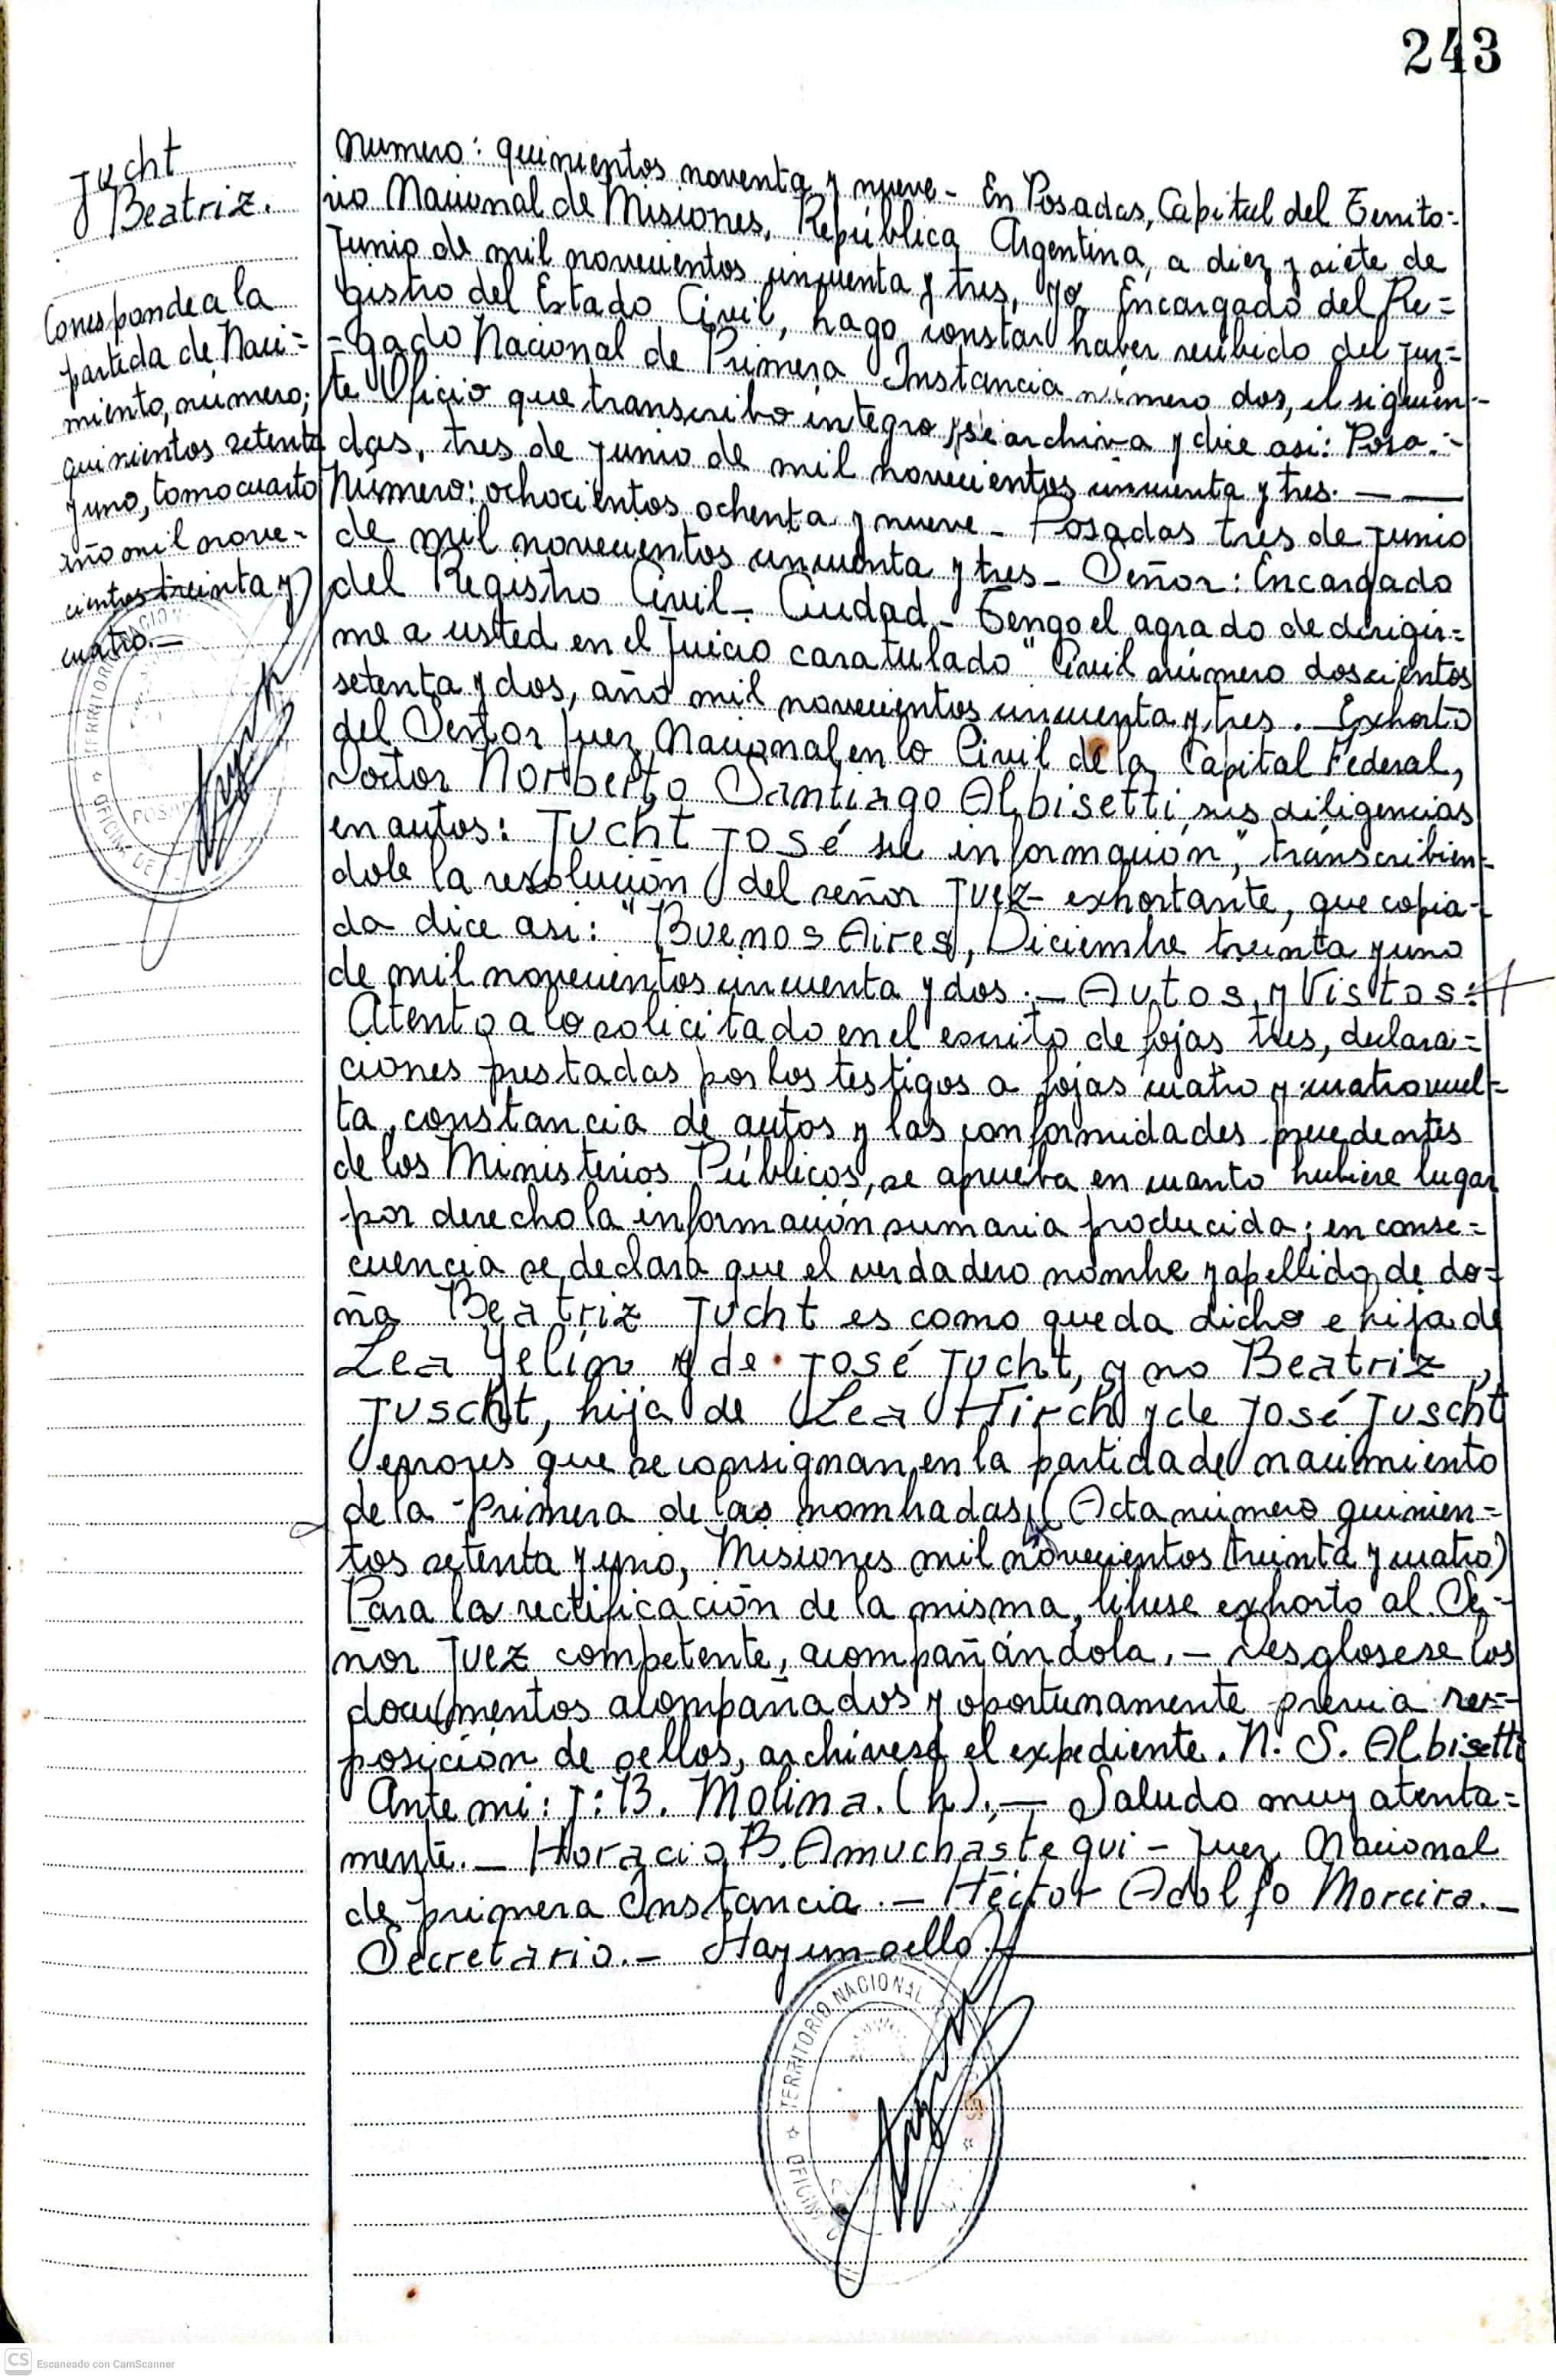 243
Jucht
Beatriz.
Corresponde a la
partida de Naci=
miento, número;
quinientos setenta
y uno, tomo cuarto
año mil nove=
cientos treinta y
cuatro.—
TERRITORIO NACIONAL
OFICINA DE
POSADAS
Numero: quinientos noventa y nueve - En Posadas, Capital del Territo=
rio Nacional de Misiones, República Argentina, a diez y siete de
Junio de mil novecientos cincuenta y tres, yo Encargado del Re=
gistro del Estado Civil, hago constar haber recibido del Juz=
=gado Nacional de Primera Instancia número dos, el siguien=
te Oficio que transcribo integro, se archiva y dice asi: Posa=
das, tres de Junio de mil novecientos cincuenta y tres. — —
Número: ochocientos ochenta y nueve - Posadas tres de Junio
de mil novecientos cincuenta y tres - Señor: Encargado
del Registro Civil - Ciudad - Tengo el agrado de dirigir=
me a usted en el Juicio caratulado "Civil número doscientos
setenta y dos, año mil novecientos cincuenta y tres. - Exhorto
del Señor Juez Nacional en lo Civil de la Capital Federal,
Doctor Norberto Santiago Albisetti, sus diligencias
en autos: Jucht José su información", transcribien-
dole la resolución del señor Juez exhortante, que copia-
da dice asi: "Buenos Aires, Diciembre treinta y uno
de mil novecientos cincuenta y dos. — Autos, y Vistos:
Atento a lo solicitado en el escrito de fojas tres, declara=
ciones prestadas por los testigos a fojas cuatro y cuatro vuel=
ta, constancia de autos y las conformidades precedentes
de los Ministerios Públicos, se aprueba en cuanto hubiere lugar
por derecho la información sumaria producida; en conse=
cuencia se declara que el verdadero nombre y apellido de do=
ña Beatriz Jucht es como queda dicho e hija de
Lea Yelin y de José Jucht, y no Beatriz,
Juscht, hija de Lea Hirch y de José Juscht
errores que se consignan en la partida de nacimiento
de la primera de las nombradas, (Acta número quinien=
tos setenta y uno, Misiones mil novecientos treinta y cuatro)
Para la rectificación de la misma, librese exhorto al Se-
ñor Juez competente, acompañándola. - Desglosese los
documentos acompañados y oportunamente previa re=
posición de sellos, archívese el expediente. N. S. Albisetti
Ante mi: J: B. Molina. (h). — Saludo muy atenta=
mente. — Horacio B. Amuchastegui - Juez Nacional
de primera Instancia. — Héctor Adolfo Moreira. —
Secretario. — Hay un sello.
TERRITORIO NACIONAL
CS Escaneado con CamScanner